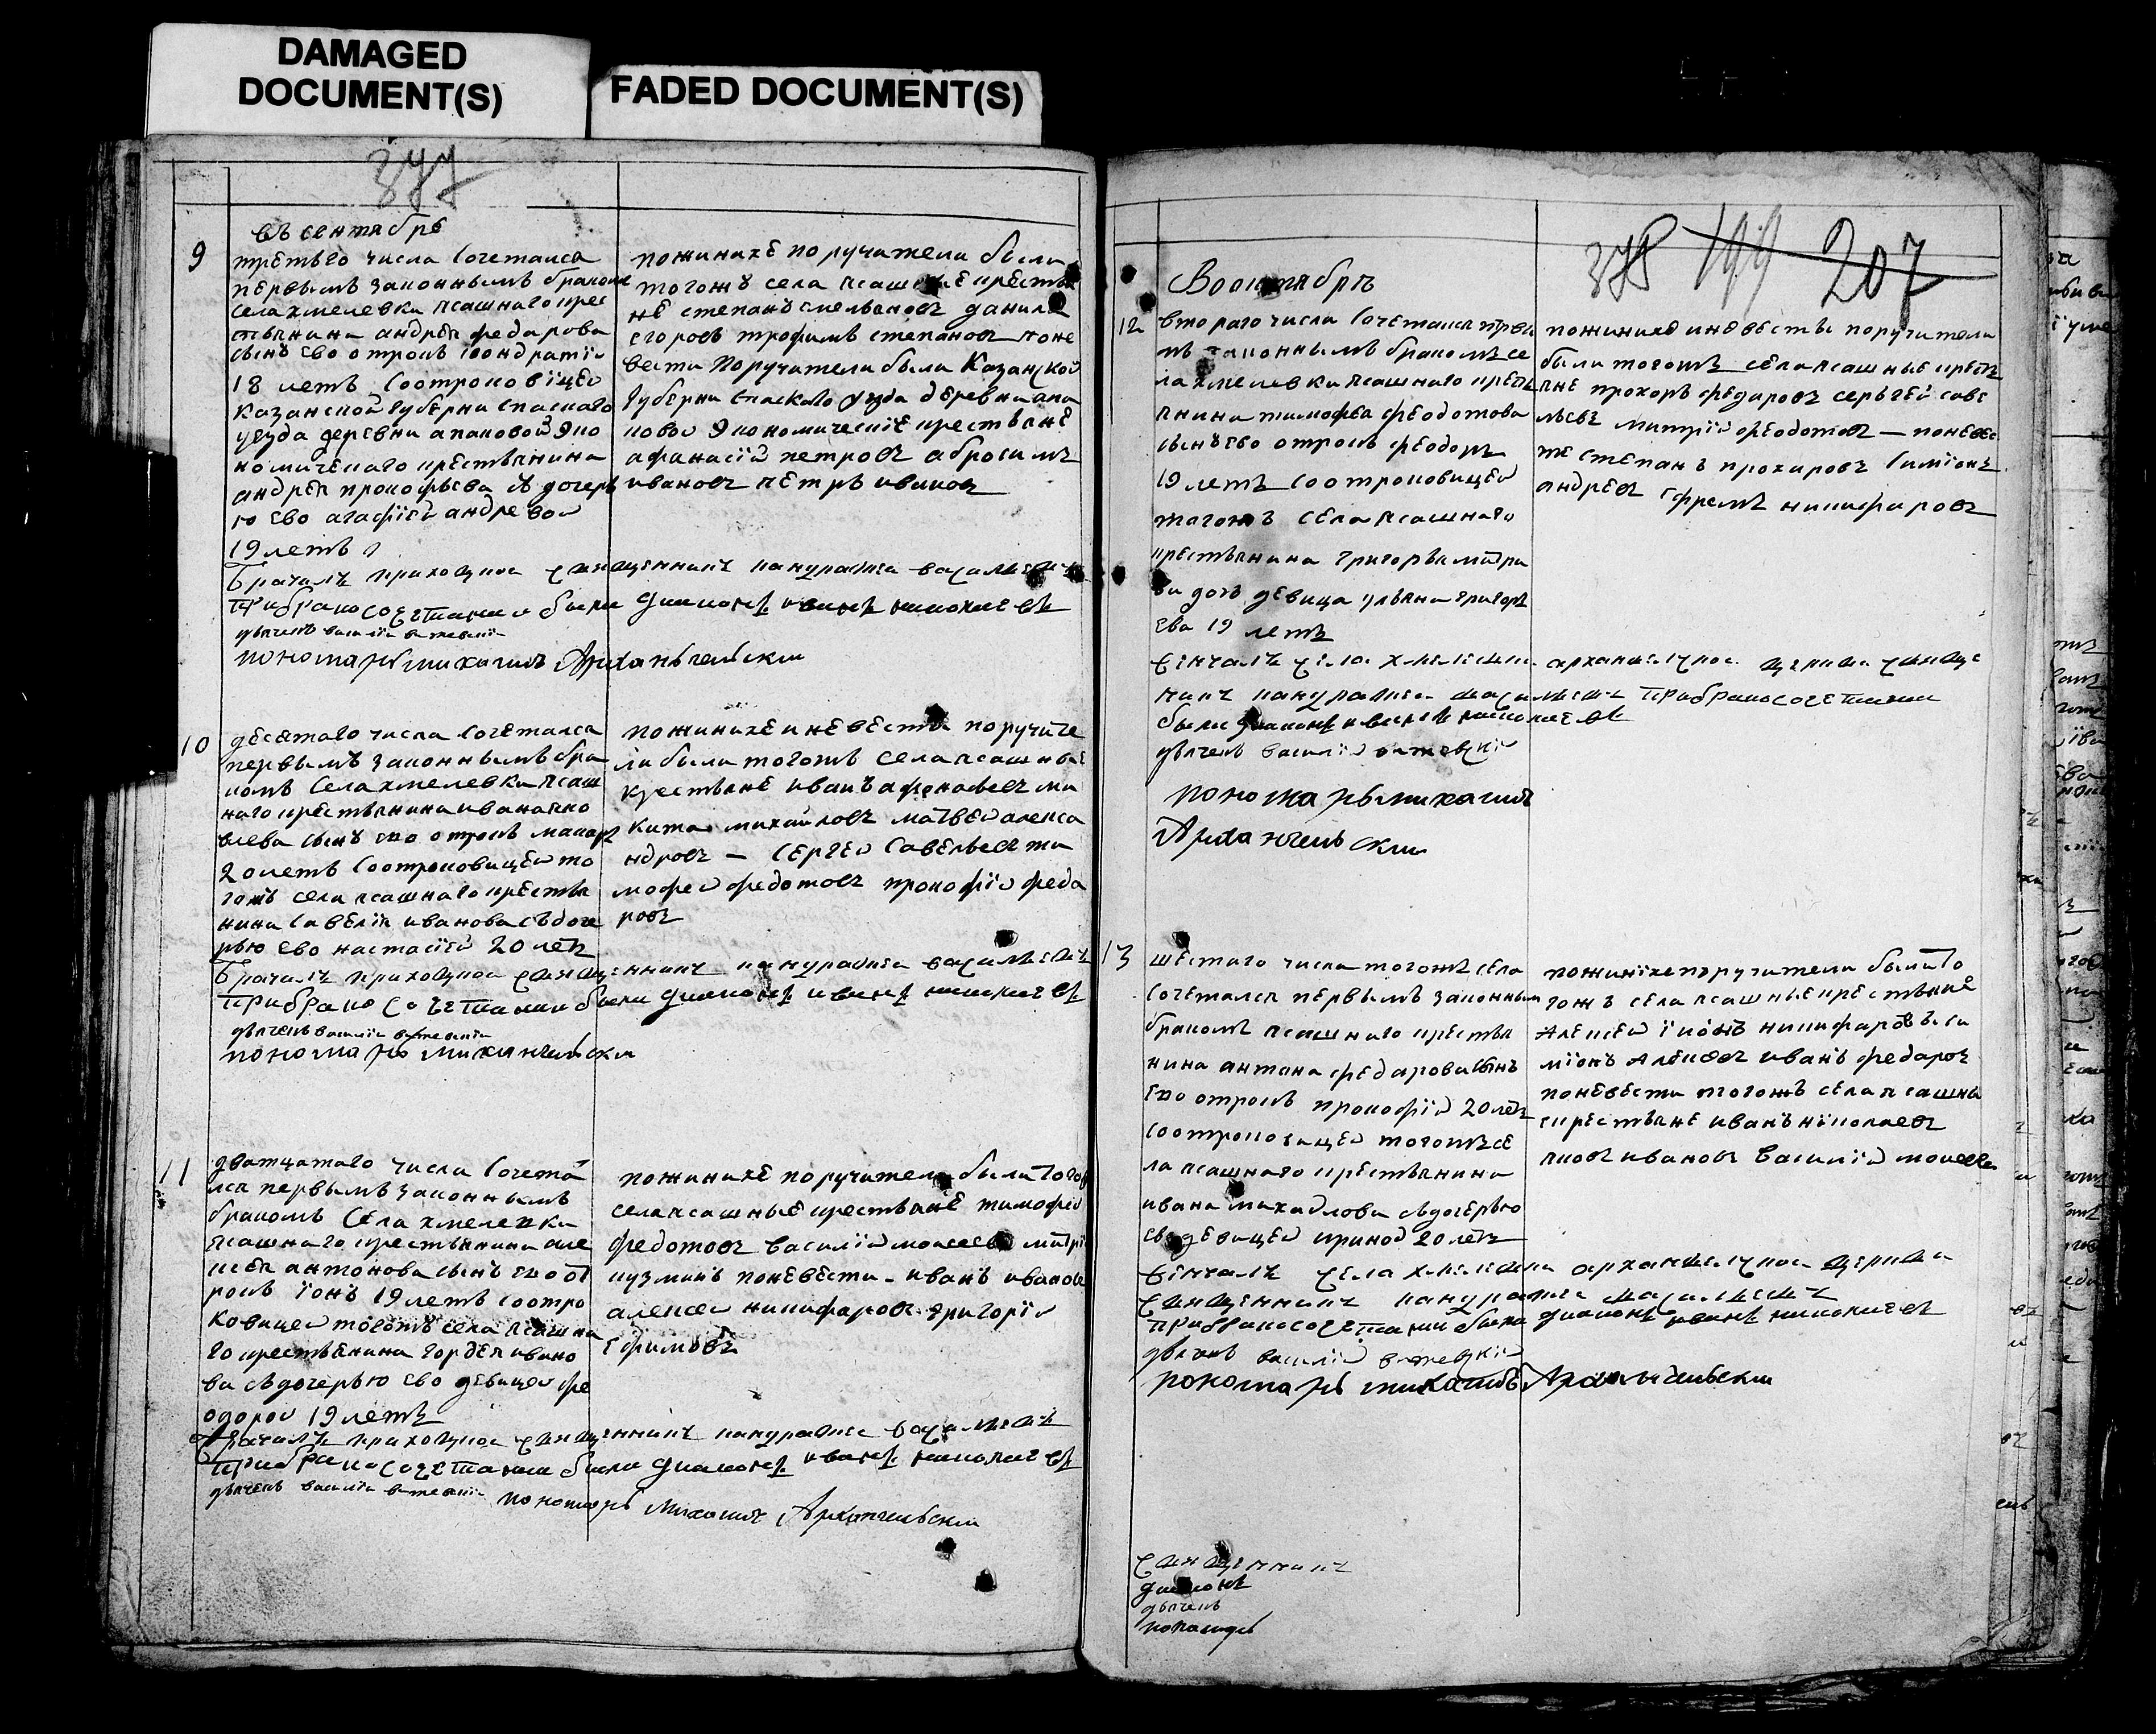 DAMAGED
DOCUMENT(S)
FADED DOCUMENT(S)
377
въ сентябре
9
третьего числа сочетался
первымъ законнымъ бракомъ
села хмелевки ясашнаго крес
тьянина андрея федарова
сынъ ево отрокъ кондратiй
18 летъ соотроковiцею
казанской губерни спаского
уезда деревни апаковой эко
номическаго крестьянина
андрея прокофьева съ дочерь
ю ево агафiей андревой
19 летъ
Бракъ приходской священникъ
при бракосочетании были диаконъ иванъ николаевъ
дьячекъ василiй
пономарь михаилъ Архангельски
пожинихе поручители были
тогожъ села ясашные крестья
не степанъ емельяновъ данила
егоровъ трофимъ степановъ поне
вести поручители были Казанской
губерни спаского уезда деревни апа
ковой экономическiе крестьяне
афанасiй петровъ абросимъ
ивановъ петръ ивановъ
10
десятаго числа сочетался
первымъ законнымъ бра
комъ села хмелевки ясаш
наго крестьянина ивана яко
влева сынъ ево отрокъ макаръ
20 летъ соотроковицею то
гожъ села ясашнаго крестья
нина савелiя иванова съ доче
рью ево настасiей 20 летъ
Бракъ приходской священникъ
при бракосочетании были диаконъ иванъ николаевъ
дьячекъ василiй
пономарь
пожинихе и невесте поручите
ли были тогожъ села ясашные
крестьяне иванъ афонафьевъ ми
кита михайловъ матвей алекса
ндровъ — сергей савельевъ ти
мофей федотовъ прокофiй феда
ровъ
11
дватцатаго числа сочета
лся первымъ законнымъ
бракомъ села хмелевки
ясашнаго крестьянина але
ксея антонова сынъ ево от
рокъ iонъ 19 летъ соотро
ковицей тогожъ села ясашна
го крестьянина гордея ивано
ва съ дочерью ево девицей фе
одорой 19 летъ
приходской священникъ
при бракосочетании были диаконъ иванъ николаевъ
дьячекъ василiй
пономарь Михаилъ Архангельски
пожинихе поручители были того
села ясашные крестьяне тимофей
федотовъ василiй моисеевъ митрi
кузминъ поневести - иванъ ивановъ
алексей никифаровъ григорiй
ефимовъ
378 199 207
Воктябрь
12
втораго числа сочетался первы
мъ законнымъ бракомъ се
ла хмелевки ясашнаго кресть
янина тимофея феодотова
сынъ ево отрокъ феодоръ
19 летъ соотроковицей
тогожъ села ясашнаго
крестьянина григорья митри
ва дочь девица ульяна григорь
ева 19 летъ
венчалъ села хмелевки архангельской церкви священ
никъ при бракосочетании
были диаконъ иванъ николаевъ
дьячекъ василiй
пономарь михаилъ
Архангельски
пожинихе и невесте поручители
были тогожъ села ясашные кресть
яне прохоръ федаровъ сергей саве
льевъ митрiй феодотовъ — поневес
те степанъ прохировъ симiонъ
андревъ ефремъ никифаровъ
13
шестаго числа тогожъ села
сочетался первымъ законнымъ
бракомъ ясашнаго крестья
нина антона федарова сынъ
ево отрокъ прокофiй 20 летъ
соотроковицей тогожъ се
ла ясашнаго крестьянина
ивана михайлова съ дочерью
ево девицей ириной 20 летъ
венчалъ села хмелевки архангельской церкви
священникъ
при бракосочетании были диаконъ иванъ николаевъ
дьячекъ василiй
пономарь михаилъ Архангельски
пожинихе поручители были то
гожъ села ясашные крестьяне
Алексей iионъ никифаровъ си
мiонъ Алексевъ иванъ федаровъ
поневести тогожъ села ясашны
е крестьяне иванъ николаевъ
яковъ ивановъ василiй моисеевъ
священникъ
диаконъ
дьячекъ
пономарь